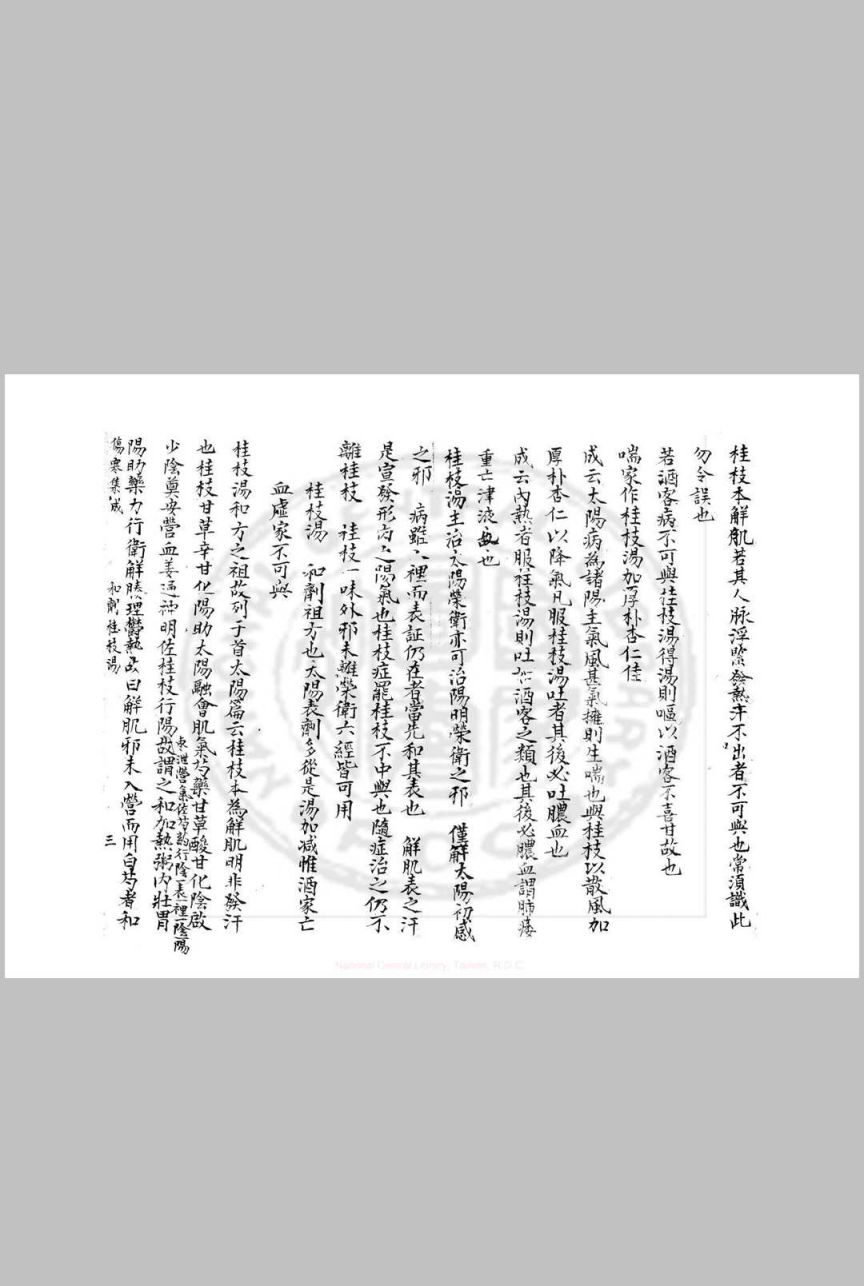 桂枝本解肌若其人脉浮緊發熱汗不出者不可與也常須識此
勿令誤也
若酒客病不可與桂枝湯得湯則嘔以酒客不喜甘故也
喘家作桂枝湯加厚朴杏仁佳
成云太陽病為諸陽主氣風甚氣擁則生喘也與桂枝以散風加
厚朴杏仁以降氣凡服桂枝湯吐者其後必吐膿血也
成云內熱者服桂枝湯則吐如酒客之類也其後必膿血謂肺痿
重亡津液也
桂枝湯主治太陽榮衛亦可治陽明榮衛之邪 僅解太陽初感
之邪 病雖入裡而表証仍在者當先和其表也 解肌表之汗
是宣發形肉之陽氣也桂枝症罷桂枝不中與也隨症治之仍不
離桂枝 桂枝一味外邪未離榮衛六經皆可用
桂枝湯 和劑祖方也太陽表劑多從是湯加減惟酒家亡
血虛家不可與
桂枝湯和方之祖故列于首太陽篇云桂枝本為解肌明非發汗
也桂枝甘草辛甘化陽助太陽融會肌氣芍藥甘草酸甘化陰啟
少陰奠安營血姜通神明佐桂枝行陽故謂之和加熱粥內壯胃
棗泄營氣佐芍藥行陰一表一裡一陰一陽
陽助藥力行衛解腠理鬱熱故曰解肌邪未入營而用白芍者和
傷寒集成 和劑桂枝湯 三
National Central Library, Taiwan, R.O.C.